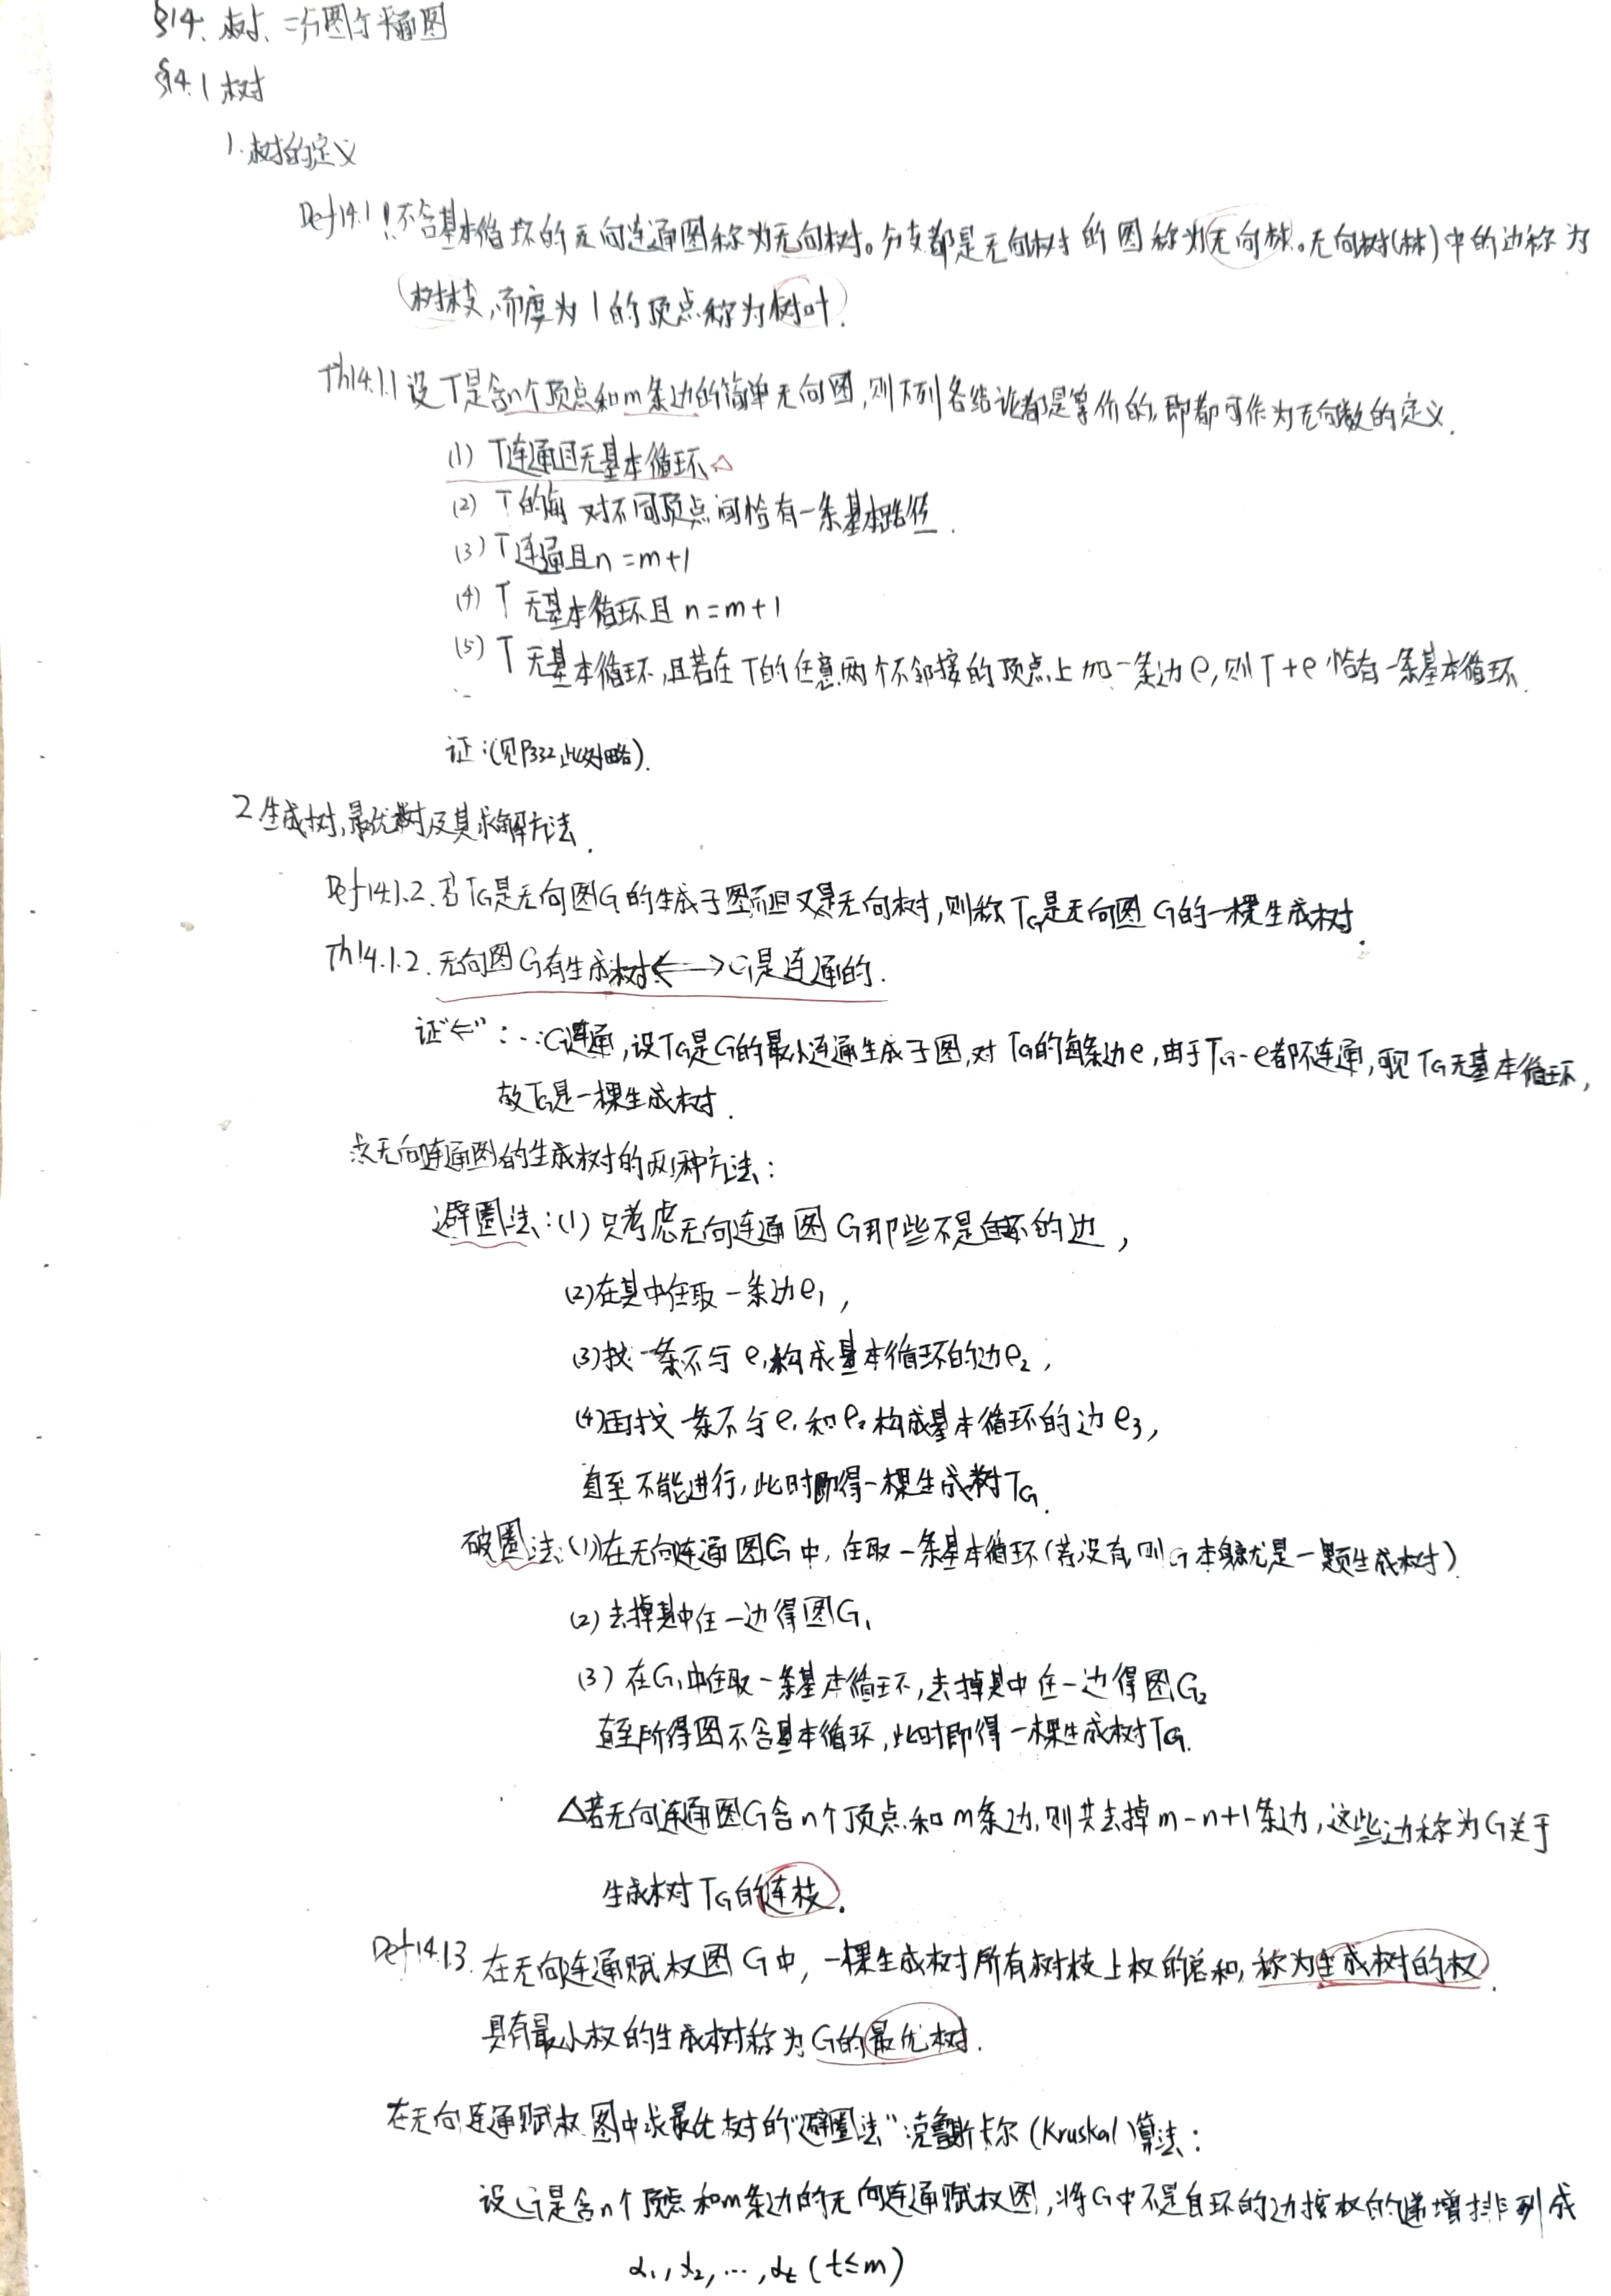 §14. 树、二分图与平面图
§14.1 树
1. 树的定义
Def14.1.1 不含基本循环的无向连通图称为无向树。分支都是无向树的图称为无向林。无向树(林)中的边称为
树枝,而度为1的顶点称为树叶.
Th14.1.1 设T是含n个顶点和m条边的简单无向图,则下列各结论都是等价的,即都可作为无向数的定义.
(1) T连通且无基本循环△
(2) T的每对不同顶点间恰有一条基本路径.
(3) T连通且n=m+1
(4) T无基本循环且 n=m+1
(5) T无基本循环,且若在T的任意两个不邻接的顶点上加一条边e,则T+e恰有一条基本循环.
证:(见P332此处略).
2.生成树,最优树及其求解方法.
Def14.1.2.若TG是无向图G的生成子图而且又是无向树,则称TG是无向图G的一棵生成树.
Th14.1.2.无向图G有生成树⟷G是连通的.
证"⇐":∵G连通,设TG是G的最小连通生成子图,对TG的每条边e,由于TG-e都不连通,可见TG无基本循环,
故TG是一棵生成树.
求无向连通图的生成树的两种方法:
避圈法:(1)只考虑无向连通图G那些不是自环的边,
(2)在其中任取一条边e1,
(3)找一条不与e1构成基本循环的边e2,
(4)再找一条不与e1和e2构成基本循环的边e3,
直至不能进行,此时即得一棵生成树TG.
破圈法:(1)在无向连通图G中,任取一条基本循环(若没有,则G本身就是一颗生成树)
(2)去掉其中任一边得图G1
(3)在G1中任取一条基本循环,去掉其中任一边得图G2
直至所得图不含基本循环,此时即得一棵生成树TG.
△若无向连通图G含n个顶点和m条边,则共去掉m-n+1条边,这些边称为G关于
生成树TG的连枝.
Def14.1.3.在无向连通赋权图G中,一棵生成树所有树枝上权的总和,称为生成树的权.
具有最小权的生成树称为G的最优树.
在无向连通赋权图中求最优树的"避圈法"克鲁斯卡尔(Kruskal)算法:
设G是含n个顶点和m条边的无向连通赋权图,将G中不是自环的边按权的递增排列成
α1,α2,…,αt(t≤m)